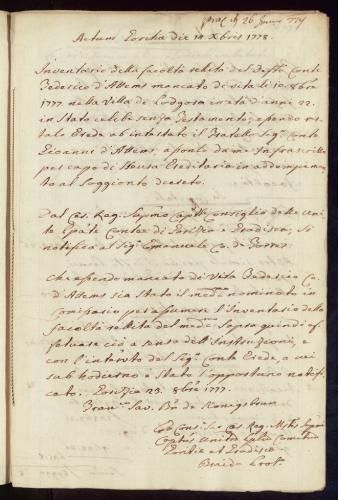 26 Jenner 779
Actum Goritia die 10 Xbris 1778.
Inventario della facoltà relita del Deffto Conte
Federico d'Attems mancato di vita li 10. 8bre
1777. nella Villa de Lodgosa in età d'anni 22.
in Stato celibe senza Testamento, essendo res-
tato Erede ab intestato il Fratello Sigr. Conte
Gioanni d'Attems, aponte da me Infrascritto
per capo di Massa Ereditaria in addempimen-
to al Soggionto decreto.
Dal Ces. Reg. Supmo Consiglio delle Uni-
te Contee di Gorizia e Gradisca, si
notifica al Sigr. Emanuele Co. de Torres
Che essendo mancato di Vita Federico Co.
d'Attems sia Stato il medmo nominato in
Comissario per assumere l'Inventario della
facoltà relita del medmo Sopra quindi ef-
fetuare ciò a senso dell'Instruzioni, e
con l'intervento del Sigr. Conte Erede, a cui
sub hodierno è Stato l'opportuno notifi-
cato. Gorizia 23. 8bre 1777.
Franco. Sav. Bn. de Konigsbrun
Ces. Reg.
Unitor
Goritiæ et Gradiscæ